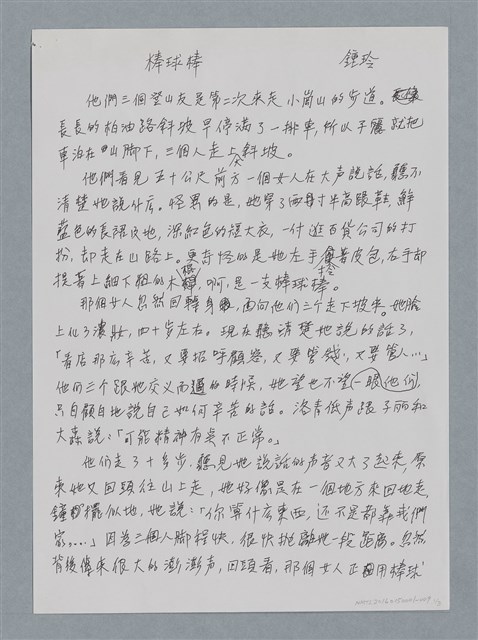 棒球棒 鍾玲
他們三個登山友是第二次來走小崗山的步道。
長長的柏油路斜坡早停滿了一排車,所以子麗就把
車泊在山腳下,三個人走上大斜坡。
他們看見五十公尺前方一個女人在大声說話,聽不
清楚她說什么。怪異的是,她穿了兩寸半高跟鞋,鮮
藍色的長裙及地,深紅色的短大衣,一什逛百貨公司的打
扮,却走在山路上。更奇怪的是她左手拿著皮包,右手却
提著上細下粗的木棍,啊,是一支棒球棒。
那個女人忽然回轉身,面向他們三个走下坡來。她臉
上化了濃妝,四十岁左右。現在聽清楚她說的話了,
「看店那么辛苦,又要招呼顧客,又要管錢,又要管人…」
他们三个跟她交叉而過的時候,她望也不望他们一眼,
只自顧自地說自己如何辛苦的話。洛青低声跟子丽和
大森說:「可能精神有点不正常。」
他们走了十多步,聽見她說話的声音又大了起來,原
來她又回頭往山上走,她好像是在一個地方來回地走,
鐘擺似地,她說:「你算什么東西,还不是都靠我們
家……」因為三個人脚程快,很快抛離她一段距离。忽然
背後傳來很大的澎澎声,回頭看,那個女人正用棒球